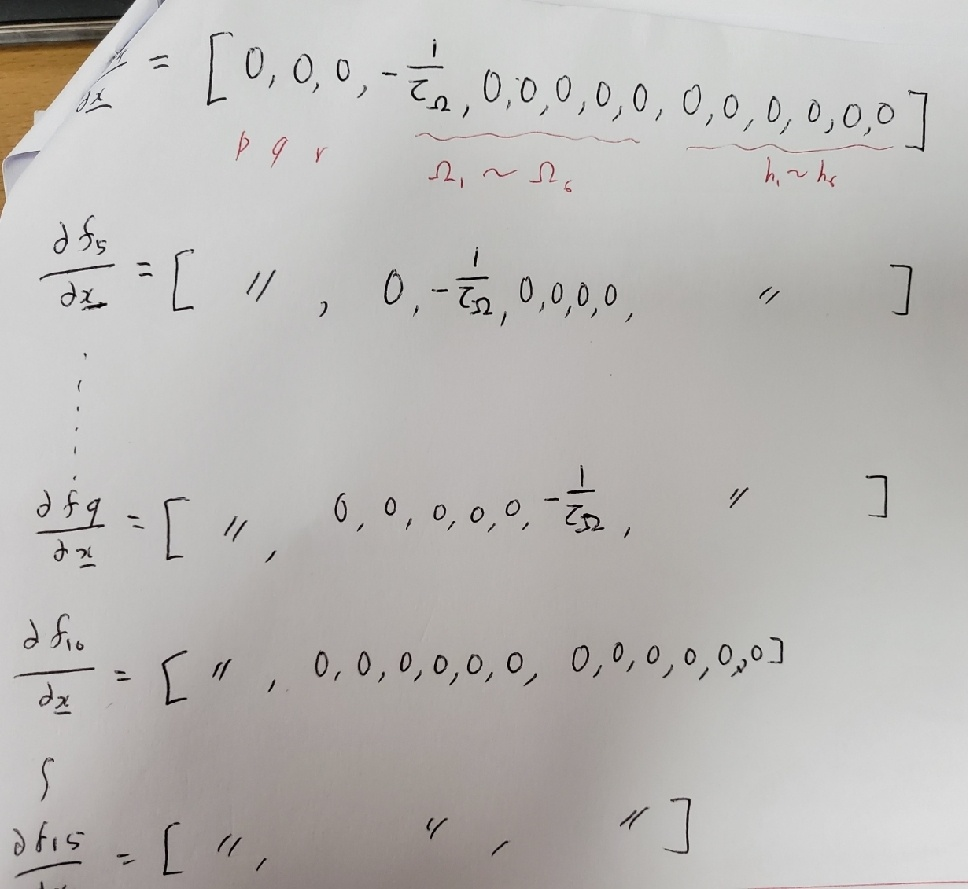 ∂x = [0, 0, 0, -1/τΩ, 0, 0, 0, 0, 0, 0, 0, 0, 0, 0, 0]
p q r Ω₁ ~ Ω₆ h₁ ~ h₆
∂f₅/∂x = [ 〃 , 0, -1/τΩ, 0, 0, 0, 0, 〃 ]
∂f9/∂x = [ 〃 , 0, 0, 0, 0, 0, -1/τΩ, 〃 ]
∂f₁₀/∂x = [ 〃 , 0, 0, 0, 0, 0, 0, 0, 0, 0, 0, 0, 0]
∫
∂f15 = [ 〃 , 〃 , 〃 ]